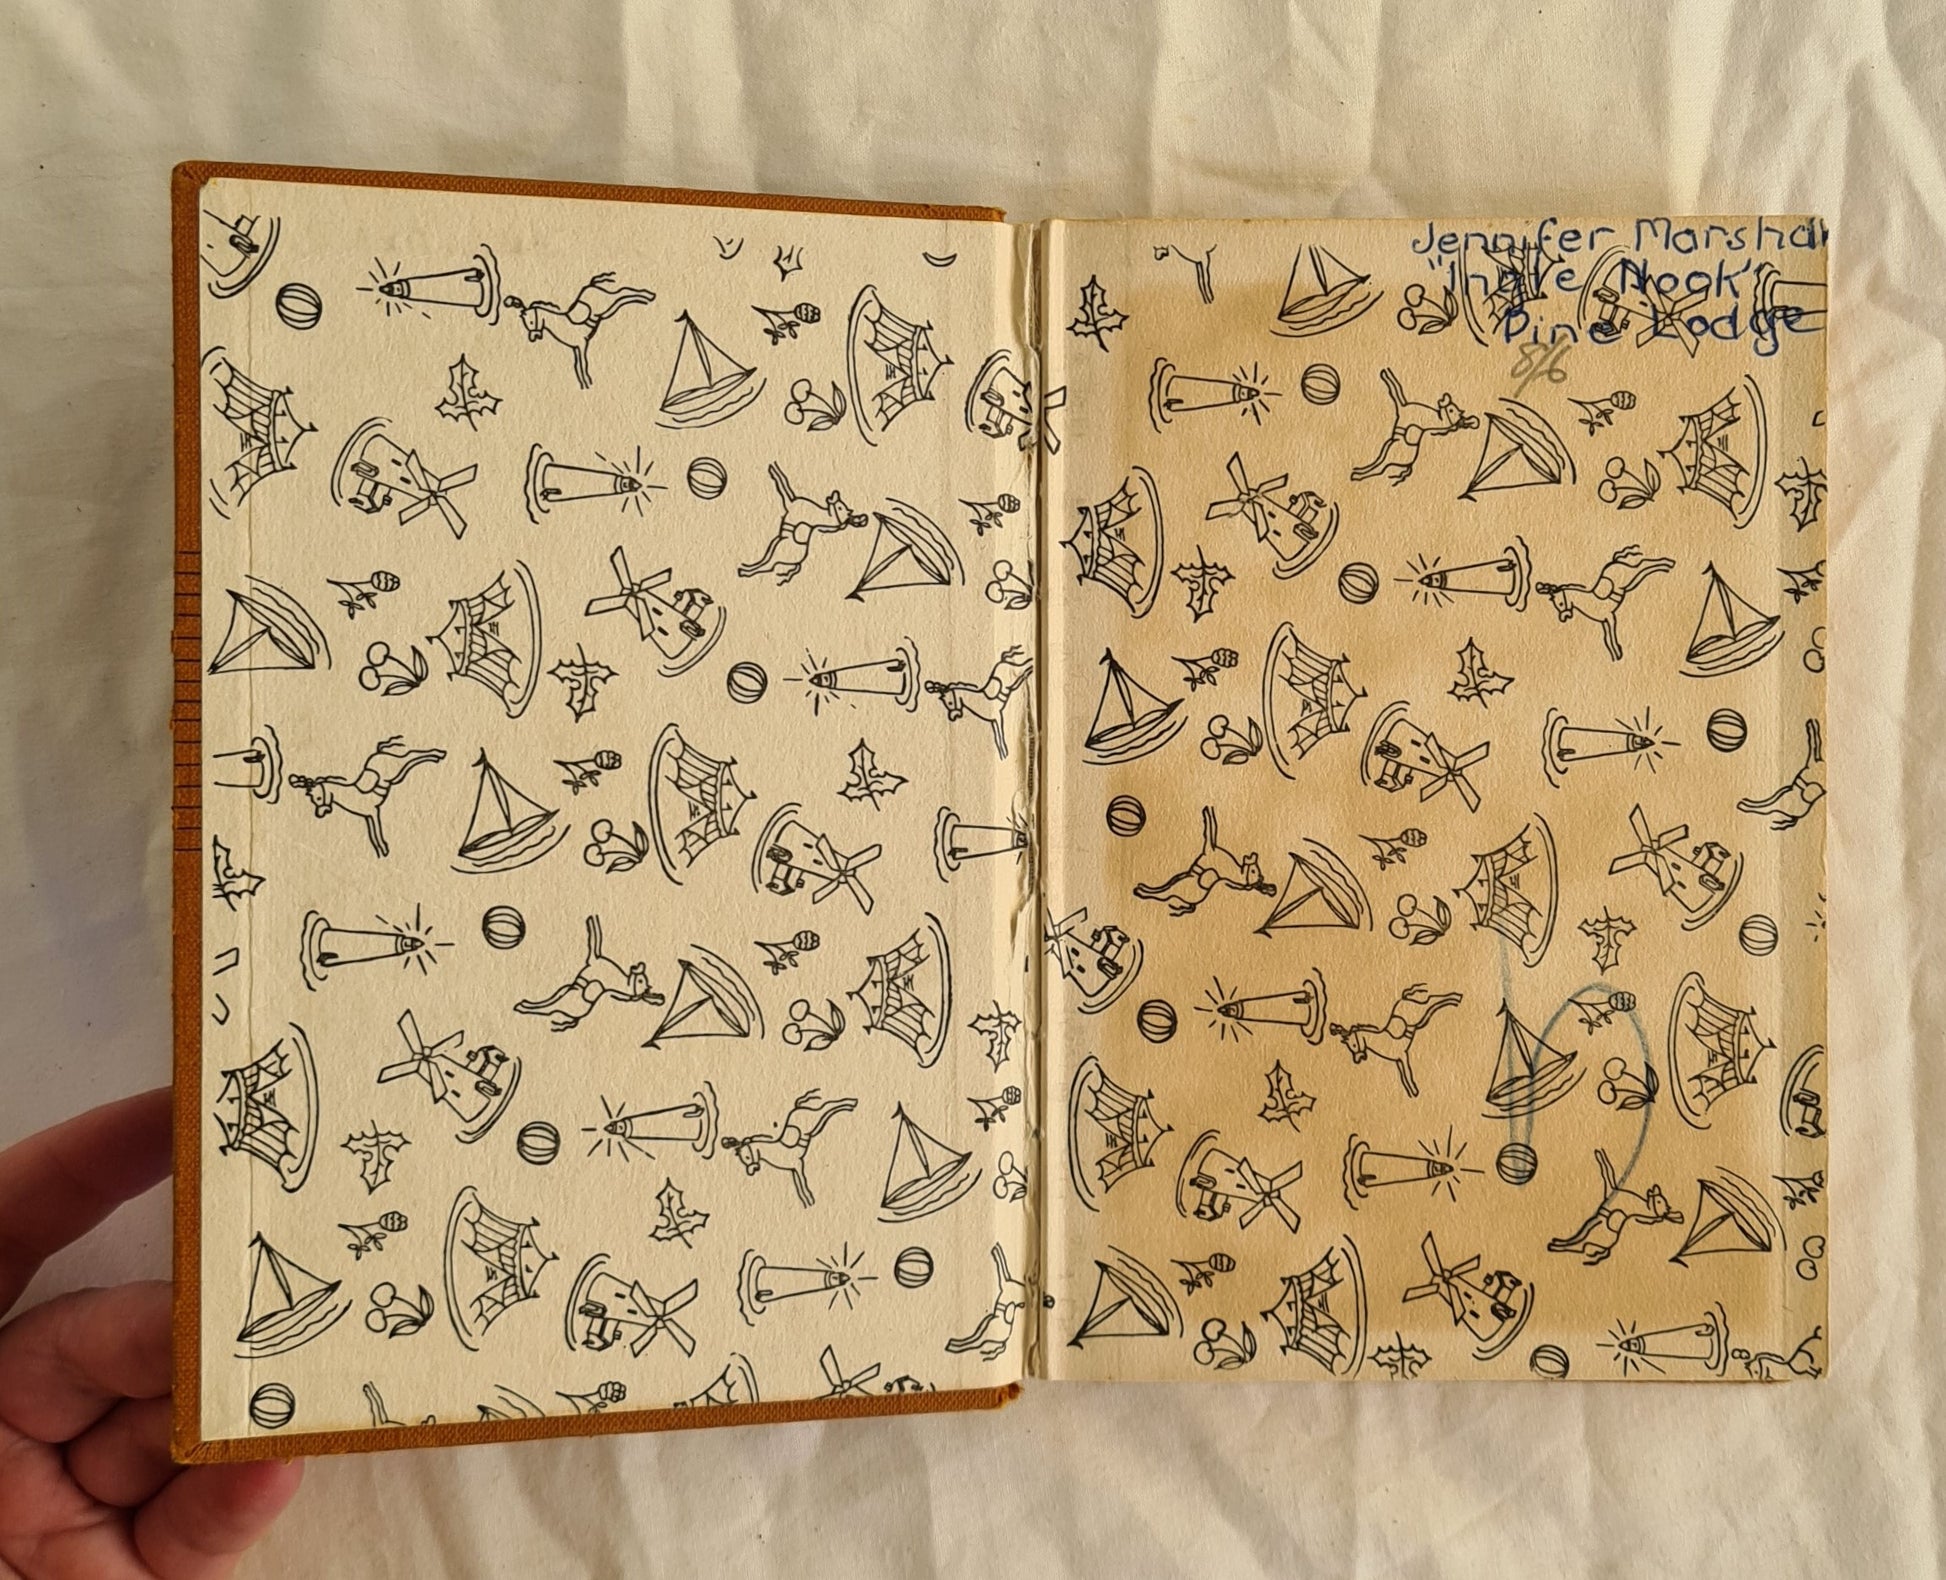 Jennifer Marshal
"Ingle Nook"
Pine Lodge
8/6